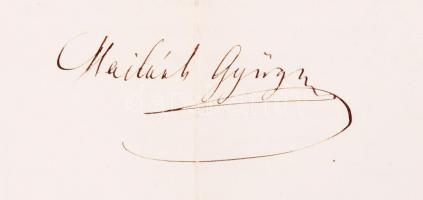 Mailáth György